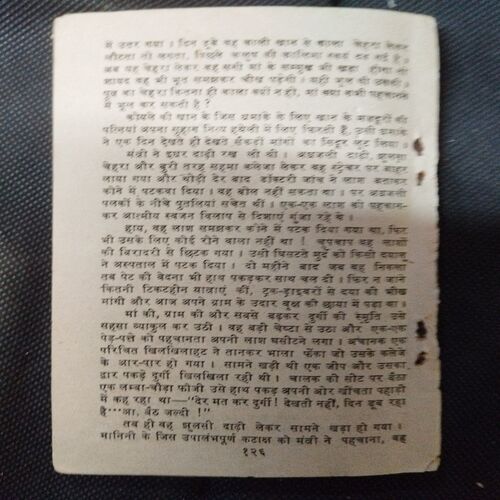 में उतर गया । दिन डूबे वह काली खान से काला चेहरा लेकर
लौटता तो लगता, पिछले कलुष की कालिमा स्वयं छूट गई है ।
अब यह चेहरा लेकर वह सगी मां के सम्मुख भी खड़ा होगा तो
शायद वह भी भूत समझकर चीख पड़ेगी । यही भूल की उसकी ।
पुत्र का चेहरा कितना ही काला क्यों न हो, मां क्या कभी पहचानने
में भूल कर सकती है ?
कोयले की खान के जिस धमाके के लिए खान के मजदूरों की
पत्नियां अपना सुहाग नित्य हथेली में लिए फिरती हैं, उसी धमाके
ने एक दिन देखते ही देखते सैकड़ों मांगों का सिंदूर लूट लिया ।
मंत्री ने इधर दाढ़ी रख ली थी । अधजली दाढ़ी, झुलसा
चेहरा और बुरी तरह सहमा कलेजा लेकर वह स्ट्रेचर पर बाहर
लाया गया और थोड़ी देर बाद डॉक्टरी जांच ने लाश बताकर
कोने में पटकवा दिया । वह बोल नहीं सकता था । पर अधजली
पलकों के नीचे पुतलियां सचेत थीं । एक-एक लाश को पहचान-
कर आत्मीय स्वजन विलाप से दिशाएं गुंजा रहे थे ।
हाय, वह लाश समझकर कोने में पटक दिया गया था, फिर
भी उसके लिए कोई रोने वाला नहीं था ! चुपचाप वह लाशों
की बिरादरी से छिटक गया । उसी घिसटते मुर्दे को किसी दयालु
ने अस्पताल में पटक दिया । दो महीने बाद जब वह निकला
तब पेट की वेदना भी हाथ पकड़कर साथ चल दी । फिर न जाने
कितनी टिकटहीन यात्राएं कीं, ट्रक-ड्राइवरों से दया की भीख
मांगी और आज अपने ग्राम के उदार वृक्ष की छाया में पड़ा था ।
मां की, ग्राम की और सबसे बढ़कर दुर्गी की स्मृति उसे
सहसा व्याकुल कर उठी । वह बड़ी चेष्टा से उठा और एक-एक
पेड़-पत्ते को पहचानता अपनी लाश घसीटने लगा । अचानक एक
परिचित खिलखिलाहट ने तानकर भाला फेंका जो उसके कलेजे
के आर-पार हो गया । सामने खड़ी थी एक जीप और उसका
द्वार पकड़े दुर्गी खिलखिला रही थी । चालक की सीट पर बैठा
एक लम्बा-चौड़ा फौजी उसे हाथ पकड़ अपनी ओर खींचता पहाड़ी
में कह रहा था—"देर मत कर दुर्गी ! देखती नहीं, दिन डूब रहा
है···आ, बैठ जल्दी !"
तब ही वह झुलसी दाढ़ी लेकर सामने खड़ा हो गया ।
मानिनी के जिस उपालंभपूर्ण कटाक्ष को मंत्री ने पहचाना, वह
१२६